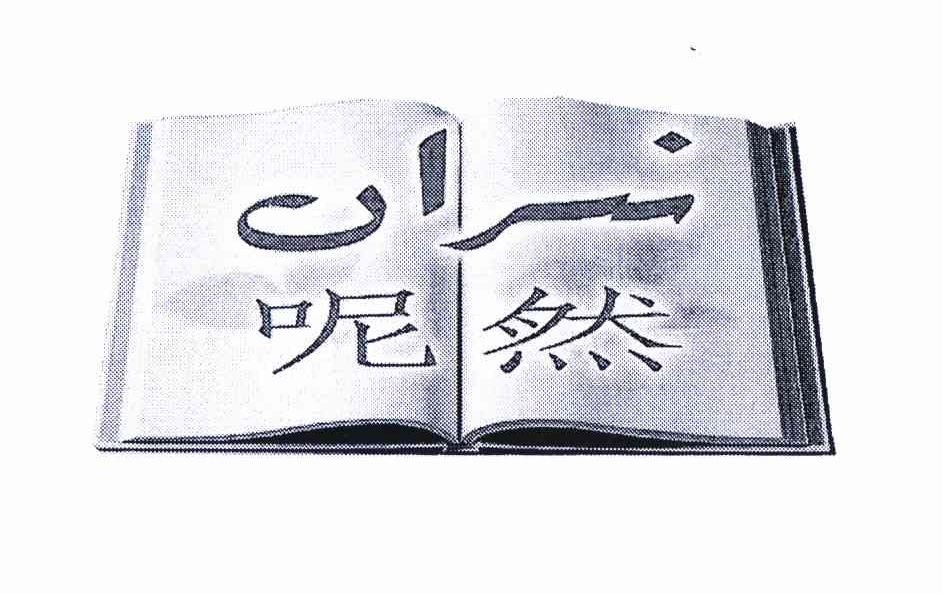 نىران
呢然